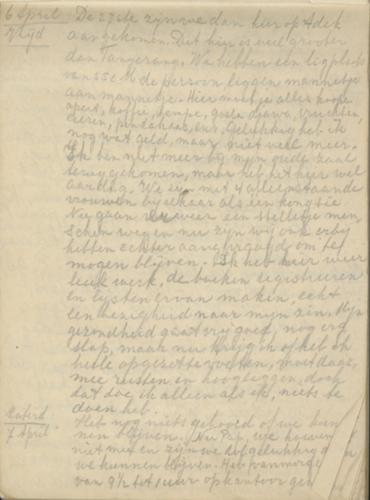 6 April De 27ste zijn we dan hier op Adek
Vrijd aangekomen. Dit hier is veel grooter
dan Tangerang. We hebben een ligplaats
van 55 c.M. de persoon, liggen mannetje
aan mannetje. Hier moet je alles koopen
koffie, tempe, goela djawa, vruchten,
eieren, pindakaas, enz. Gelukkig heb ik
nog wat geld, maar niet veel meer.
Ik ben niet meer bij mijn oude zaal
terug gekomen, maar heb het hier wel
aardig. We zijn met 4 alleenstaande
vrouwen bij elkaar als een kongsie
Nu gaan er weer een stelletje men
schen weg en nu zijn wij ook erbij
hebben echter aangevraagd om te
mogen blijven. Ik heb hier weer
leuk werk, de boeken registreeren
en lijsten ervan maken, echt
een bezigheid naar mijn zin. Mijn
gezondheid gaat vrij goed, nog erg
slap, maar nu krijg ik of heb ik
heele opgezette voeten, moet daar
mee rusten en hoogleggen, doch
dat doe ik alleen als ik niets te
doen heb.
Zaterd. Heb nog niets gehoord of we kun
7 April nen blijven. Nu Pap, we houwen
niet met en zijn we dolgelukkig
we kunnen blijven. Heb vanmorgen
van 9½ tot 1 uur op kantoor